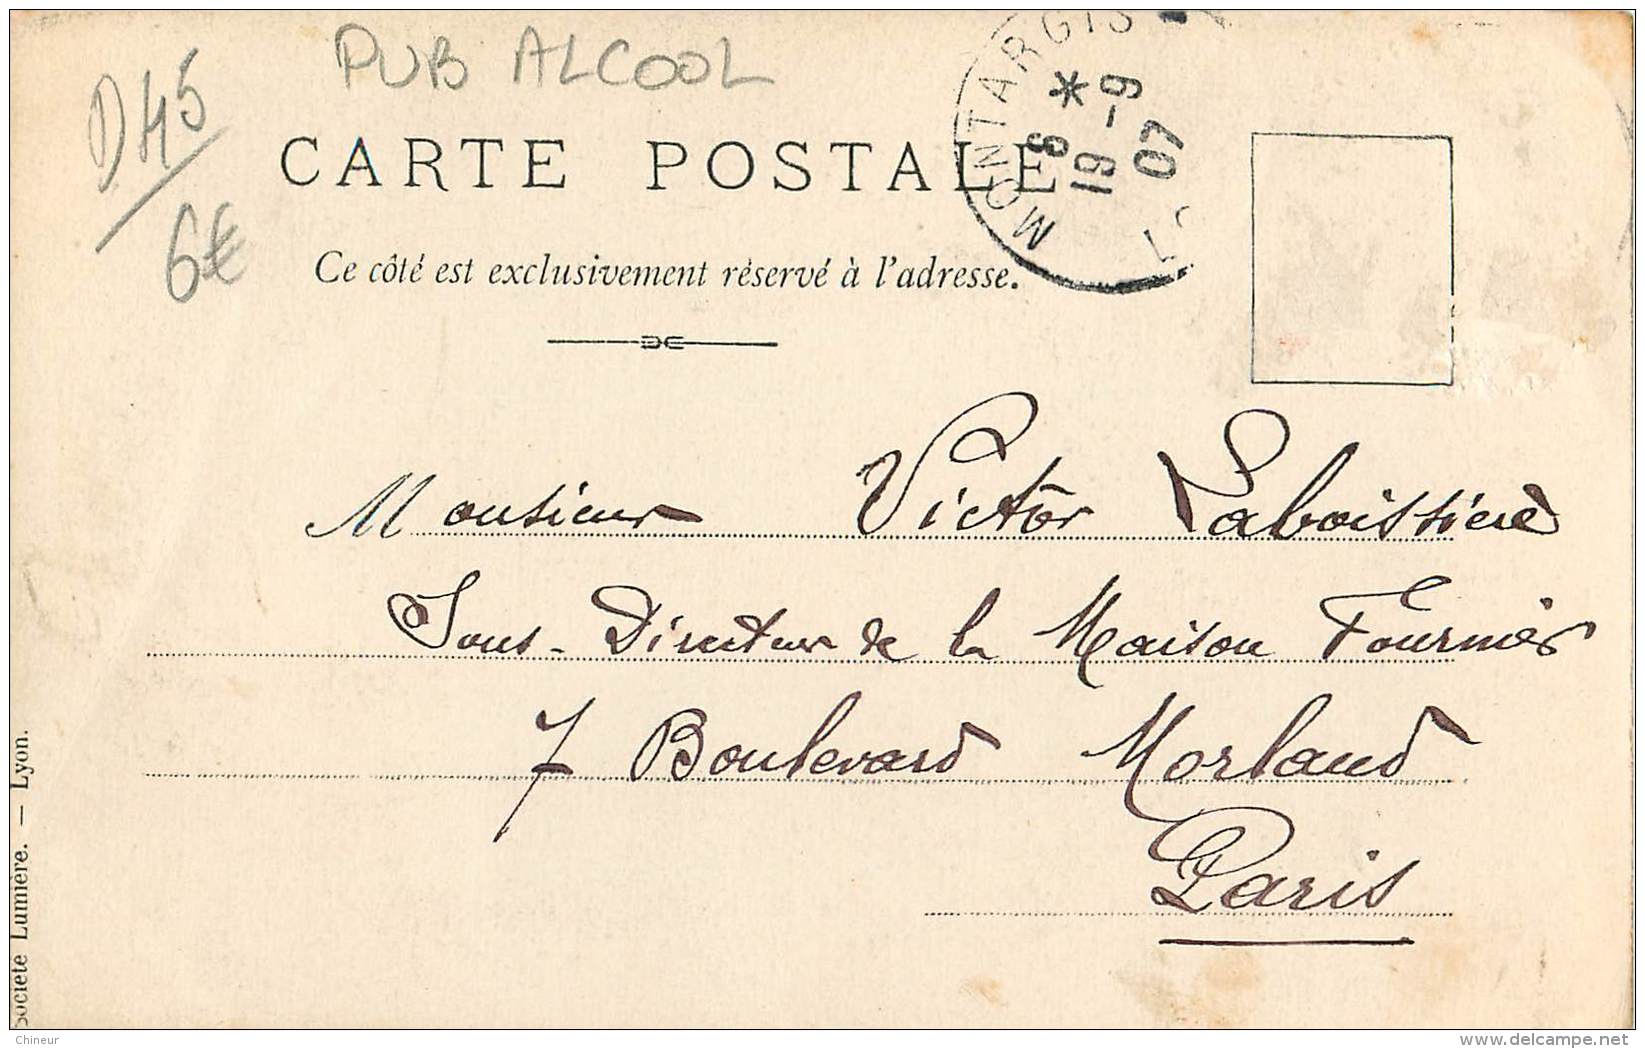 PUB ALCOOL
D45
6€
CARTE POSTALE
Ce côté est exclusivement réservé à l'adresse.
MONTARGIS
8 *
19 - 9
07
Monsieur Victor Laboissière
Sous-Directeur de la Maison Fournier
7 Boulevard Morland
Paris
Société Lumière. — Lyon.
Chineur
delcampe.net